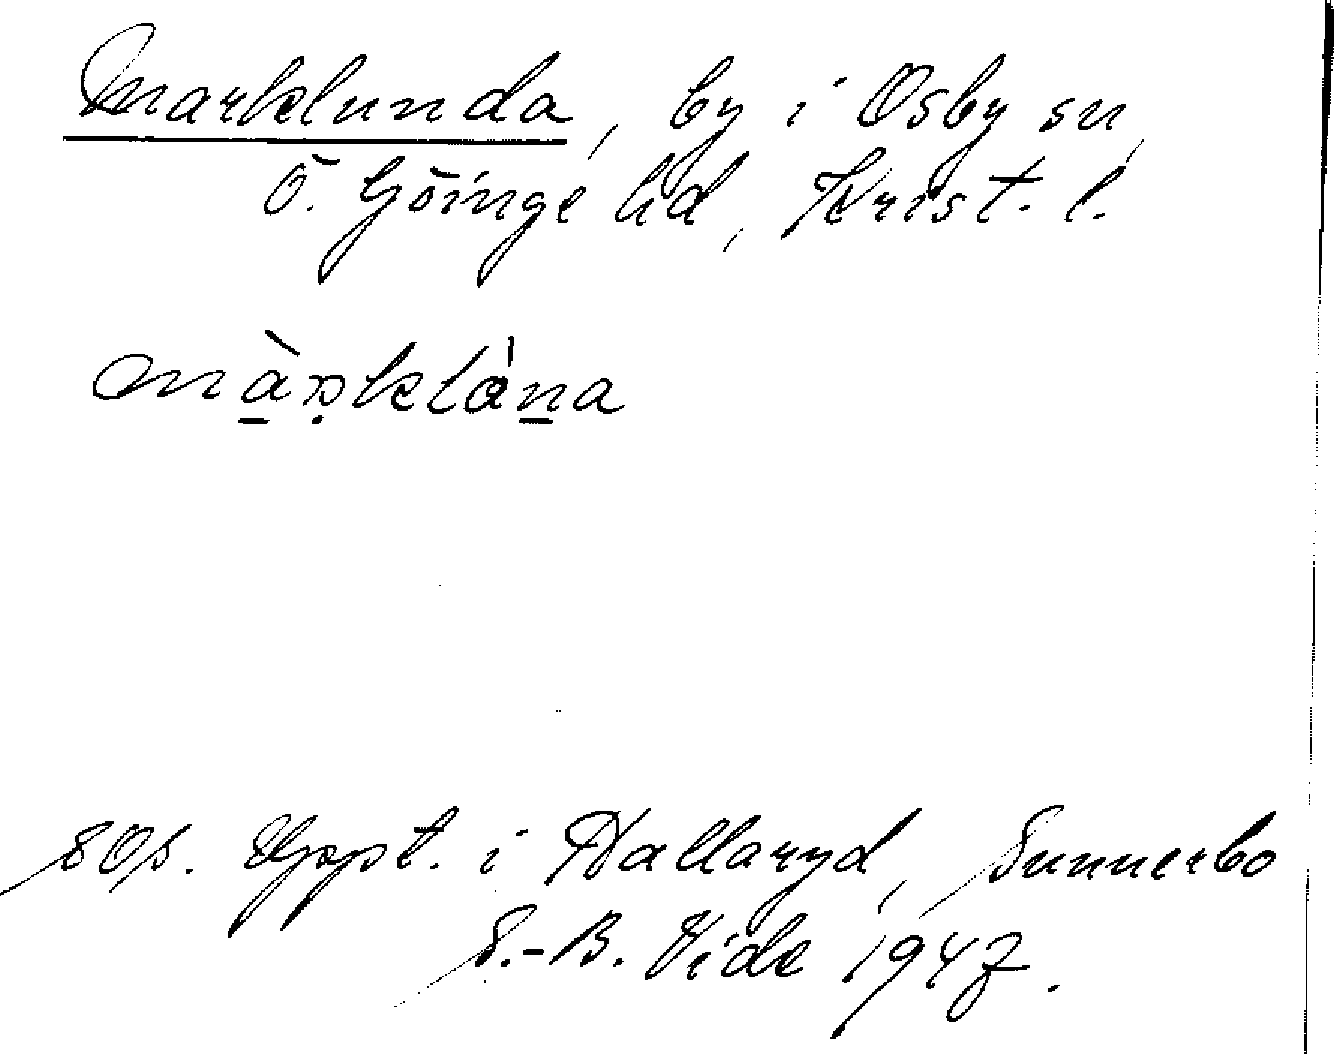 Marklunda, by i Osby sn,
Ö. Göinge hd, Krist. l.
màṛklána
SOA. Uppt. i Hallaryd, Sunnerbo
S.-B. Vide 1947.